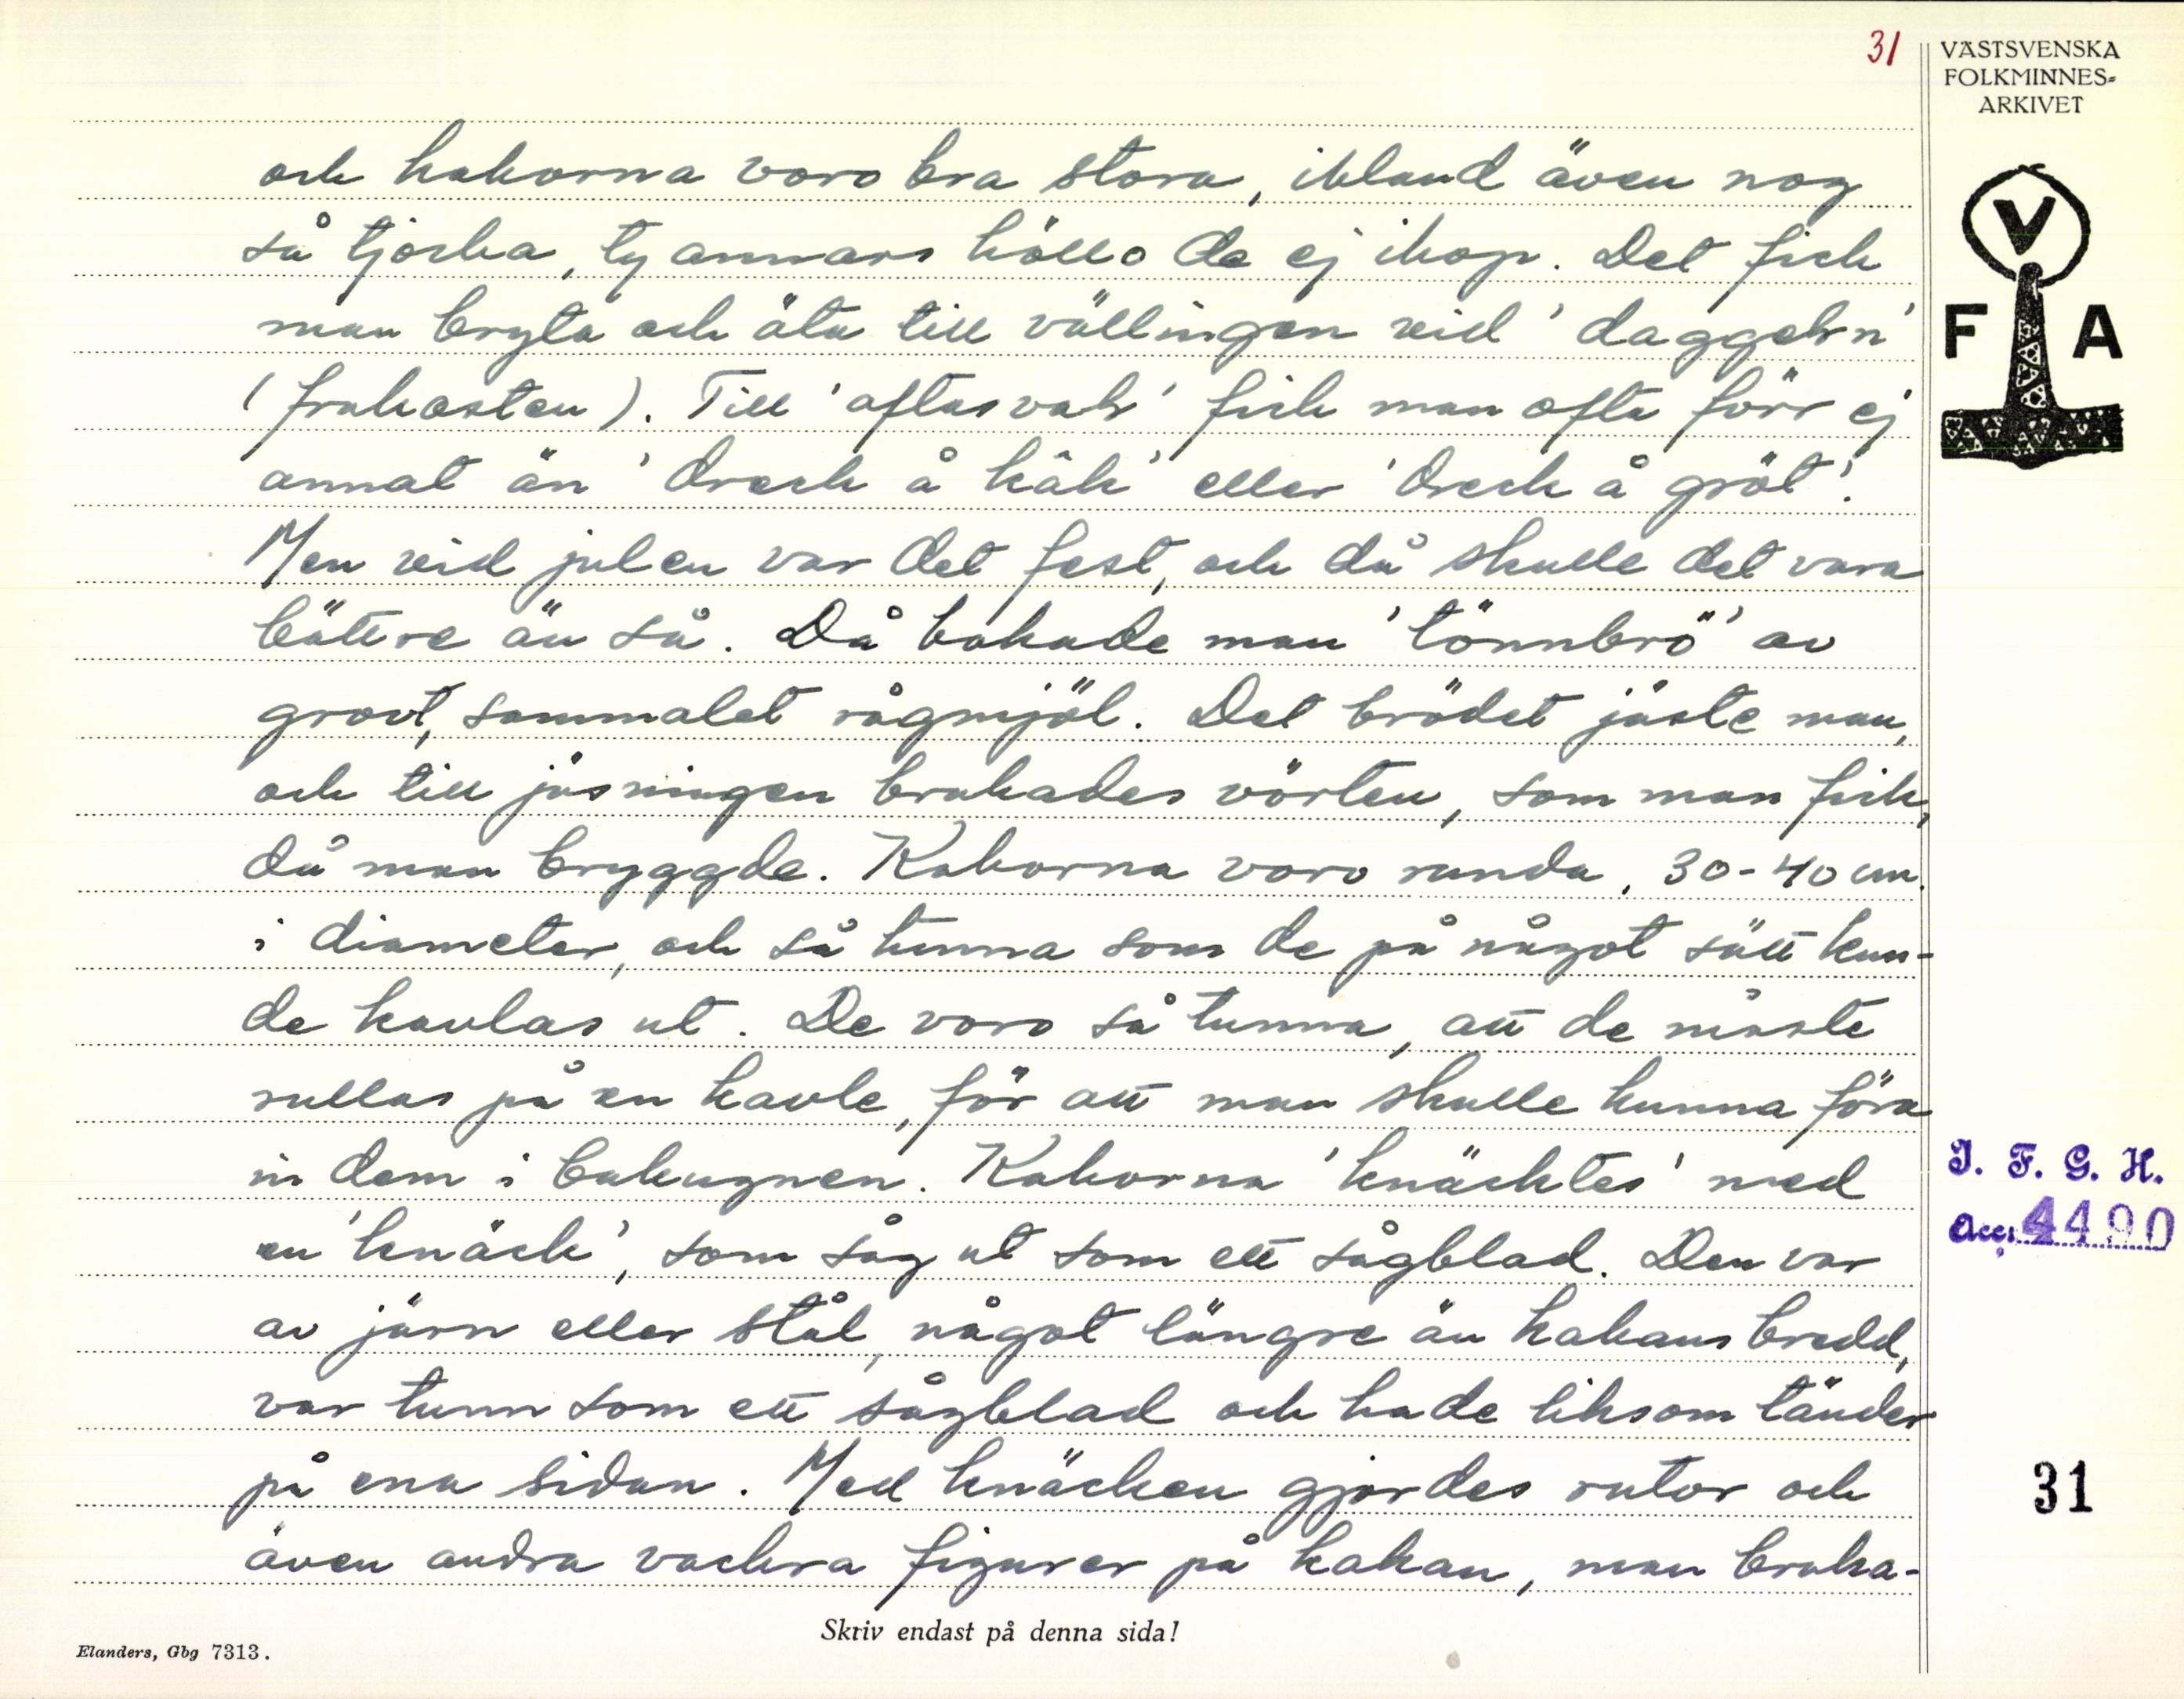 31
VÄSTSVENSKA
FOLKMINNES=
ARKIVET
V
F A
och kakorna voro bra stora, ibland även nog
så tjocka, ty annars höllo de ej ihop. Det fick
man bryta och äta till vällingen vid 'daggehrn'
(frukosten). Till 'aftasvah' fick man ofta förr ej
annat än 'dreck å kâk' eller 'dreck å gröt'.
Men vid julen var det fest, och då skulle det vara
bättre än så. Då bakade man 'tönnbrö' av
grovt, sammalet rågmjöl. Det brödet jäste man,
och till jäsningen brukades vörten, som man fick,
då man bryggde. Kakorna voro runda, 30-40 cm.
i diameter, och så tunna som de på något sätt kun-
de kavlas ut. De voro så tunna, att de måste
rullas på en kavle, för att man skulle kunna föra
in dem i bakugnen. Kakorna 'knäcktes' med
en 'knäck', som såg ut som ett sågblad. Den var
av järn eller stål, något längre än kakans bredd,
var tunn som ett sågblad och hade liksom tänder
på ena sidan. Med knäcken gjordes rutor och
även andra vackra figurer på kakan, man bruka-
I. F. G. H.
Acc. 4490
31
Skriv endast på denna sida!
Elanders, Gbg 7313.